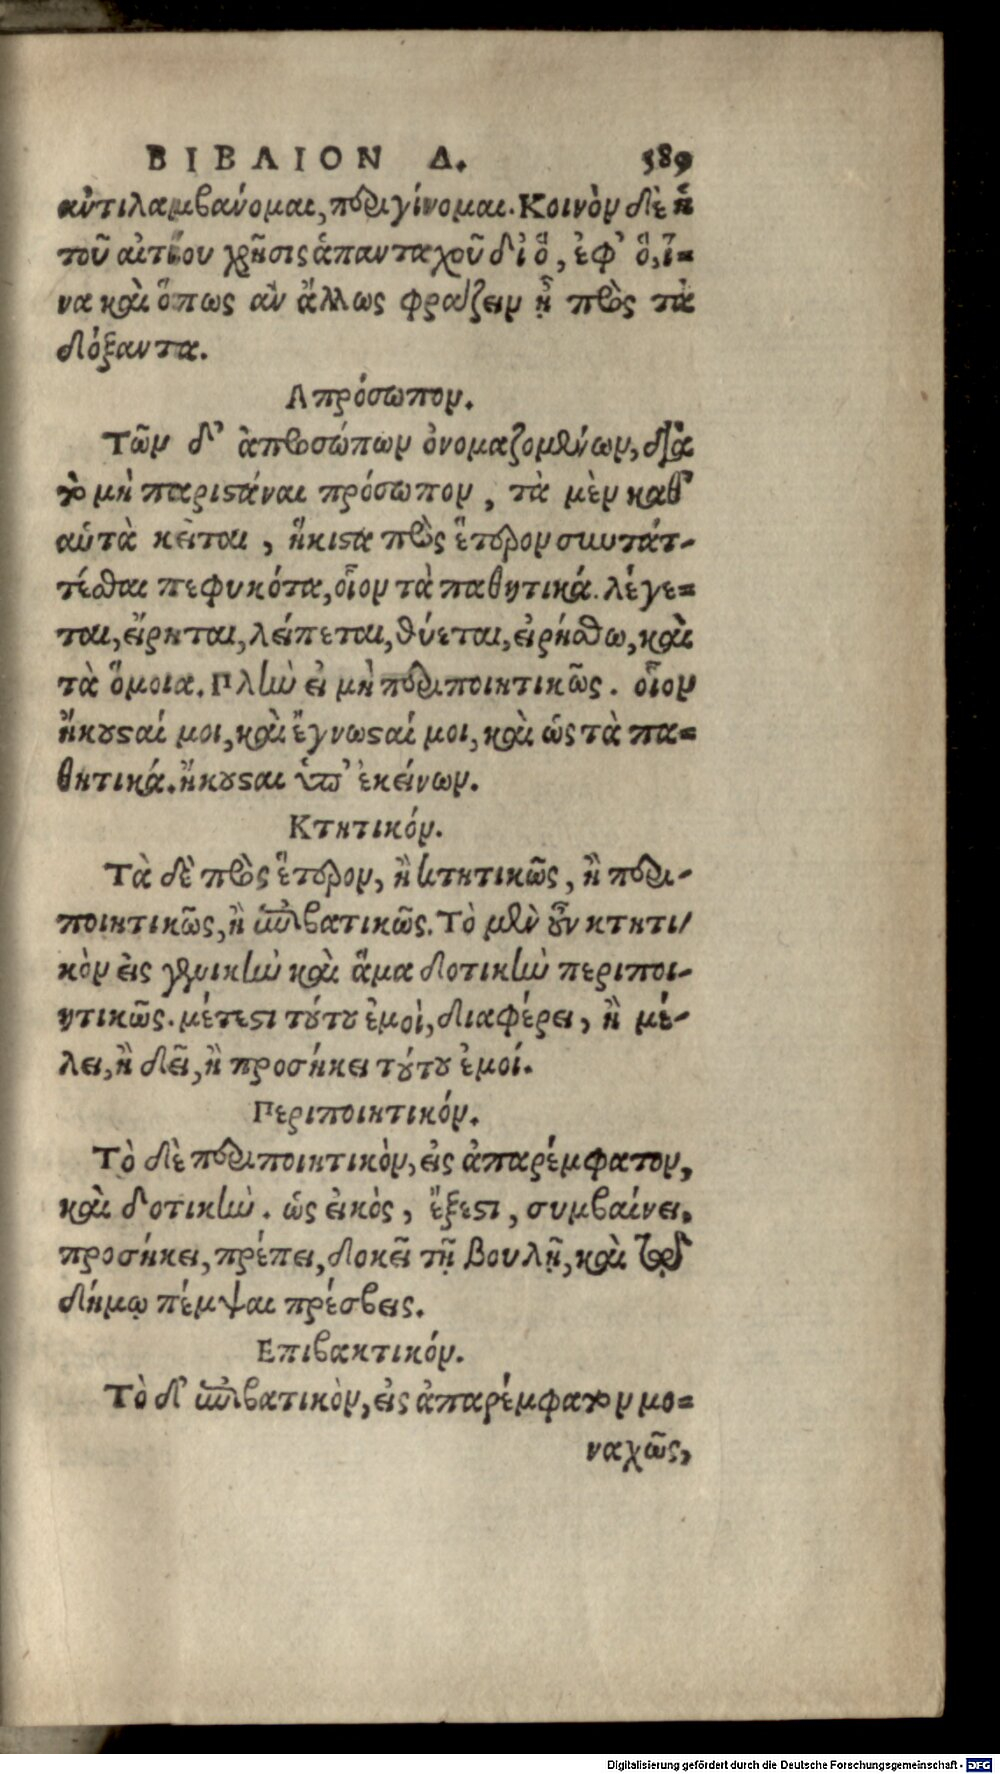 ΒΙΒΛΙΟΝ Δ. 589
ἀντιλαμβάνομαι, περιγίνομαι. Κοινὸν δὲ ἡ
τοῦ αἰτίου χρῆσις ἁπανταχοῦ δι᾿ ὃ, ἐφ᾿ ὃ, ἵ=
να καὶ ὅπως ἂν ἄλλως φράζειν ᾖ πρὸς τὰ
δόξαντα.
Απρόσωπον.
Τῶν δ᾿ ἀπροσώπων ὀνομαζομένων, διὰ
τὸ μὴ παριστάναι πρόσωπον, τὰ μὲν καθ᾿
αὑτὰ κεῖται, ἥκιστα πρὸς ἕτερον συντάτ-
τεσθαι πεφυκότα, οἷον τὰ παθητικά. λέγε=
ται, εἴρηται, λείπεται, θύεται, εἰρήσθω, καὶ
τὰ ὅμοια. Πλὴν εἰ μὴ περιποιητικῶς. οἷον
ἤκουσταί μοι, καὶ ἔγνωσταί μοι, καὶ ὡς τὰ πα=
θητικά. ἤκουσται ὑπ᾿ ἐκείνων.
Κτητικόν.
Τὰ δὲ πρὸς ἕτερον, ἢ κτητικῶς, ἢ περι-
ποιητικῶς, ἢ ἐπιβατικῶς. Τὸ μὲν οὖν κτητι-
κὸν εἰς γενικὴν καὶ ἅμα δοτικὴν περιποι-
ητικῶς. μέτεστι τούτου ἐμοὶ, διαφέρει, ἢ μέ-
λει, ἢ δεῖ, ἢ προσήκει τούτου ἐμοί.
Περιποιητικόν.
Τὸ δὲ περιποιητικὸν, εἰς ἀπαρέμφατον,
καὶ δοτικὴν. ὡς εἰκὸς, ἔξεστι, συμβαίνει.
προσήκει, πρέπει, δοκεῖ τῇ βουλῇ, καὶ τῷ
δήμῳ πέμψαι πρέσβεις.
Επιβακτικόν.
Τὸ δ᾿ ἐπιβατικὸν, εἰς ἀπαρέμφατον μο=
ναχῶς,
Digitalisierung gefördert durch die Deutsche Forschungsgemeinschaft - DFG